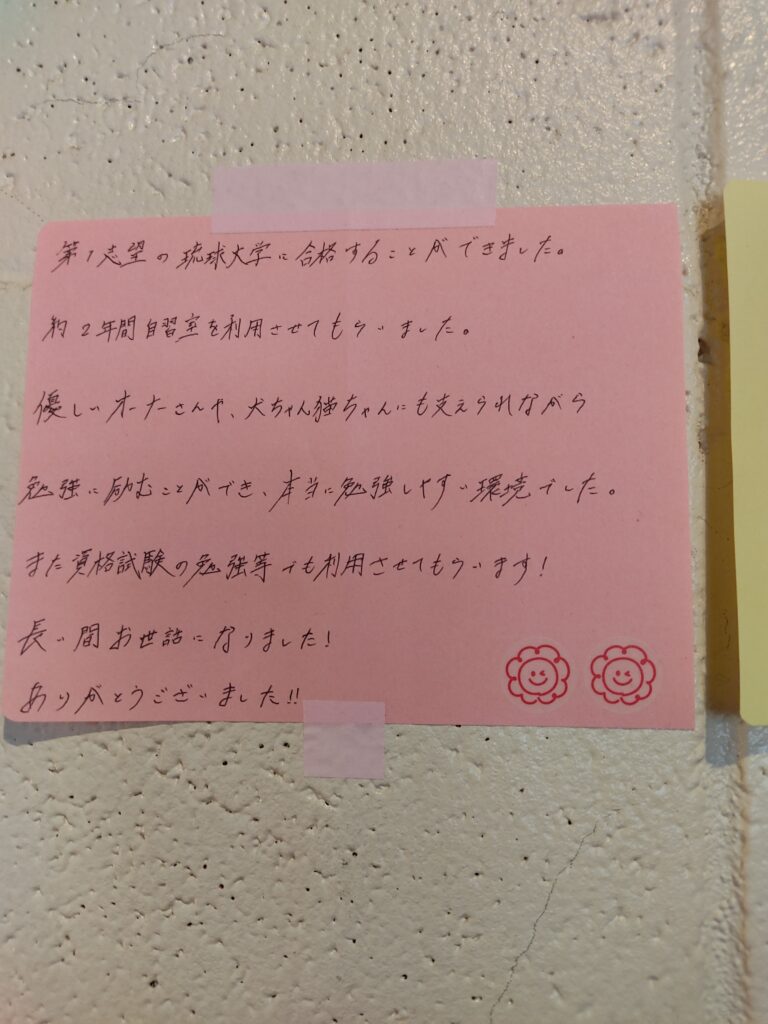 第1志望の琉球大学に合格することができました。
約2年間自習室を利用させてもらいました。
優しいオーナーさんや、犬ちゃん猫ちゃんにも支えられながら
勉強に励むことができ、本当に勉強しやすい環境でした。
また資格試験の勉強等でも利用させてもらいます!
長い間お世話になりました!
ありがとうございました!!